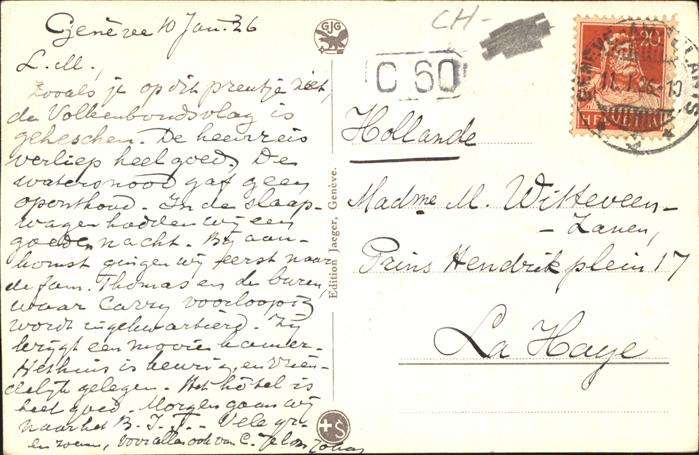 Genève 10 Jan. 26
L.M.,
Zooals je op dit prentje ziet,
de Volkenbondsvlag is
geheschen. De heenreis
verliep heel goed. De
watersnood gaf geen
oponthoud. In de slaap-
wagen hadden wij een
goeden nacht. Bij aan-
komst gingen wij eerst naar
de fam. Thomas en de buren,
waar Carry voorloopig
wordt ingekwartierd. Zij
krijgt een mooie kamer.
Het huis is keurig, en vrien-
delijk gelegen. Het hôtel is
heel goed. Morgen gaan wij
naar het B.I.T. Vele gr.
en zoenen, voor allen ook van C.
GJG
CH-
C 60
20
HELVETIA
GENÈVE
11. I. 26 - 10
Hollande
Madme M. Witteveen-
- Zanen,
Prins Hendrikplein 17
La Haye
Edition Jaeger, Genève.
+S